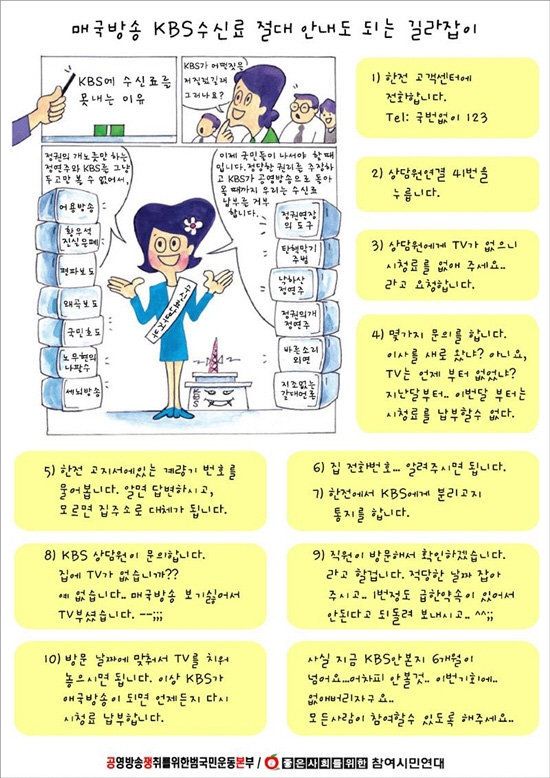 매국방송 KBS수신료 절대 안내도 되는 길라잡이
KBS에 수신료를
못내는 이유
KBS가 어떤짓을
저질렀길래
그러나요?
정권의 개노릇만 하는
정연주와 KBS를 그냥
두고만 볼 수 없어서,
이제 국민들이 나서야 할 때
입니다. 정당한 권리를 주장하고
KBS가 공영방송으로 돌아
올 때까지 우리는 수신료
납부를 거부
합니다.
어용방송
황우석
진실은폐
편파보도
왜곡보도
국민호도
노무현의
나팔수
세뇌방송
정권연장
의 도구
탄핵막기
주범
낙하산
정연주
정권의개
정연주
바른소리
외면
지조없는
갈대언론
KBS
1) 한전 고객센터에
전화합니다.
Tel: 국번없이 123
2) 상담원연결 41번을
누릅니다.
3) 상담원에게 TV가 없으니
시청료를 없애 주세요..
라고 요청합니다.
4) 몇가지 문의를 합니다.
이사를 새로 왔냐? 아니요,
TV는 언제 부터 없었냐?
지난달부터.. 이번달 부터는
시청료를 납부할수 없다.
5) 한전 고지서에있는 계량기 번호를
물어봅니다. 알면 답변하시고,
모르면 집주소로 대체가 됩니다.
6) 집 전화번호... 알려주시면 됩니다.
7) 한전에서 KBS에게 분리고지
통지를 합니다.
8) KBS 상담원이 문의합니다.
집에 TV가 없습니까??
예 없습니다.. 매국방송 보기싫어서
TV부셨습니다. --;;;
9) 직원이 방문해서 확인하겠습니다.
라고 할겁니다. 적당한 날짜 잡아
주시고.. 1번정도 급한약속이 있어서
안된다고 되돌려 보내시고.. ^^;;
10) 방문 날짜에 맞춰서 TV를 치워
놓으시면 됩니다. 이상 KBS가
애국방송이 되면 언제든지 다시
시청료 납부합니다.
사실 지금 KBS안본지 6개월이
넘어요...어차피 안볼것.. 이번기회에..
없애버리자구요..
모든사람이 참여할수 있도록 해주세요..
공영방송쟁취를위한범국민운동본부 / 좋은사회를위한 참여시민연대